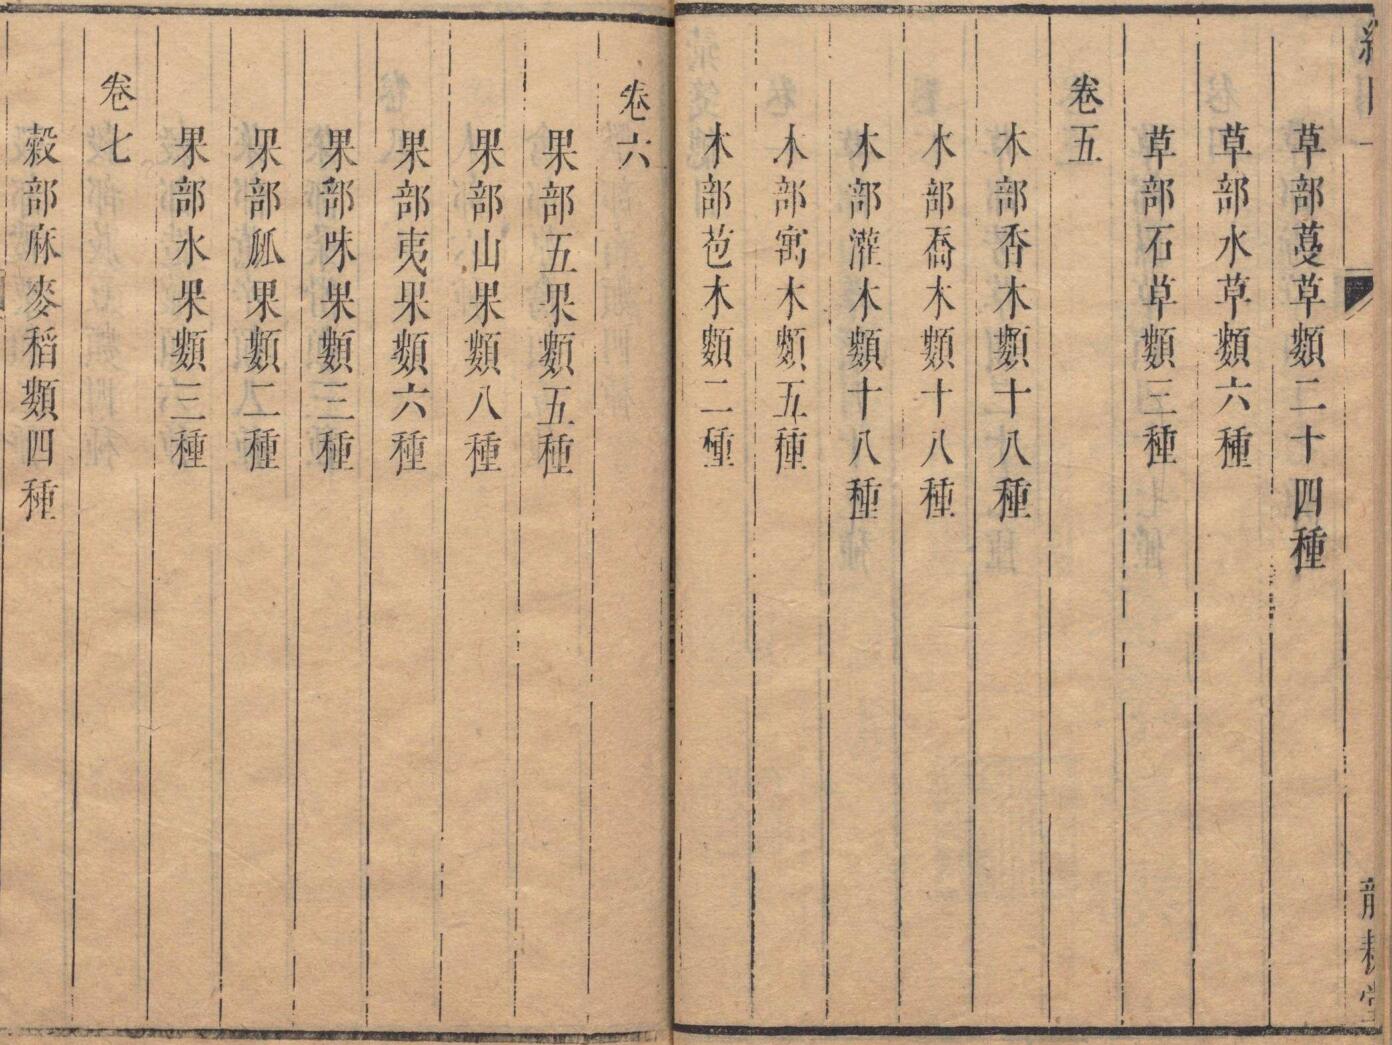 草部蔓草類二十四種
草部水草類六種
草部石草類三種
卷五
木部香木類十八種
木部喬木類十八種
木部灌木類十八種
木部寓木類五種
木部苞木類二種
卷六
果部五果類五種
果部山果類八種
果部夷果類六種
果部味果類三種
果部蓏果類二種
果部水果類三種
卷七
穀部麻麥稻類四種